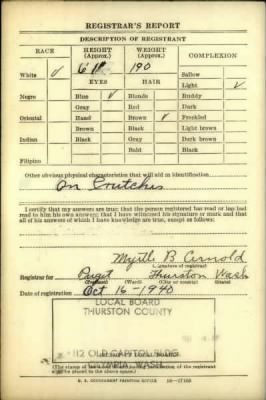 REGISTRAR'S REPORT
DESCRIPTION OF REGISTRANT
RACE HEIGHT (Approx.) WEIGHT (Approx.) COMPLEXION
White ✓ 6 ft 190 Sallow
EYES HAIR Light ✓
Negro Blue ✓ Blonde Ruddy
Gray Red Dark
Oriental Hazel Brown ✓ Freckled
Brown Black Light brown
Indian Black Gray Dark brown
Bald Black
Filipino
Other obvious physical characteristics that will aid in identification
On Crutches
I certify that my answers are true; that the person registered has read or has had
read to him his own answers; that I have witnessed his signature or mark and that
all of his answers of which I have knowledge are true, except as follows:
Myrtle B Arnold
(Signature of registrar)
Registrar for Puget Thurston Wash
(Precinct) (Ward) (City or county) (State)
Date of registration Oct 16-1940
LOCAL BOARD
THURSTON COUNTY
112 OLD CAPITOL BLDG.
OLYMPIA, WASH.
(STAMP OF LOCAL BOARD)
U. S. GOVERNMENT PRINTING OFFICE